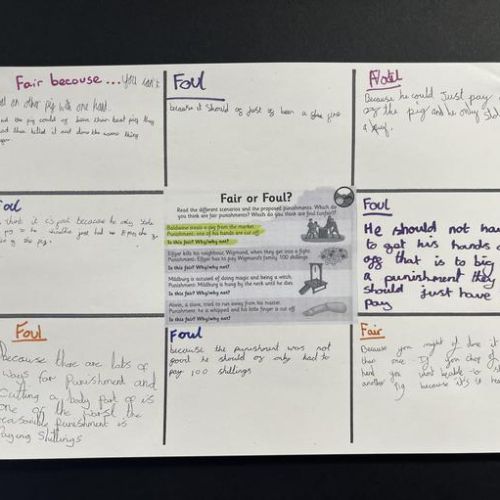 Fair becouse... you can't
on other pig with one hand.
and the pig could of been there best pig they
and then killed it and done the same thing
Foul
because it should of just of been a fine
Foul
Because he could Just pay
the pig and he only
a pig.
Foul
think it is because he only stole
pig so he should just had to pay the
of the pig.
Fair or Foul?
Read the different scenarios and the proposed punishments. Which do
you think are fair punishments? Which do you think are unfair?
Baldwine steals a pig from the market.
Punishment: one of his hands are cut off
Is this fair? Why/why not?
Edgar kills his neighbour, Wigmund, when they get into a fight.
Punishment: Edgar has to pay Wigmund's family 100 shillings
Is this fair? Why/why not?
Mildburg is accused of doing magic and being a witch.
Punishment: Mildburg is hung by the neck until he dies
Is this fair? Why/why not?
Alwin, a slave, tried to run away from his master.
Punishment: he is whipped and his little finger is cut off
Is this fair? Why/why not?
Foul
He should not hav
to got his hands
off that is to big
a punishment they
should just have
pay
Foul
Because there are lots of
ways for Punishment and
Cutting a body part of is
one of the worst the
reasonable punishment is
Paying Shillings
Foul
because the punishment was not
good he should of only had to
pay 100 shillings
Fair
Because you might of done it
than one. If you chop of
hand you wont beable to
another pig because it's to hea